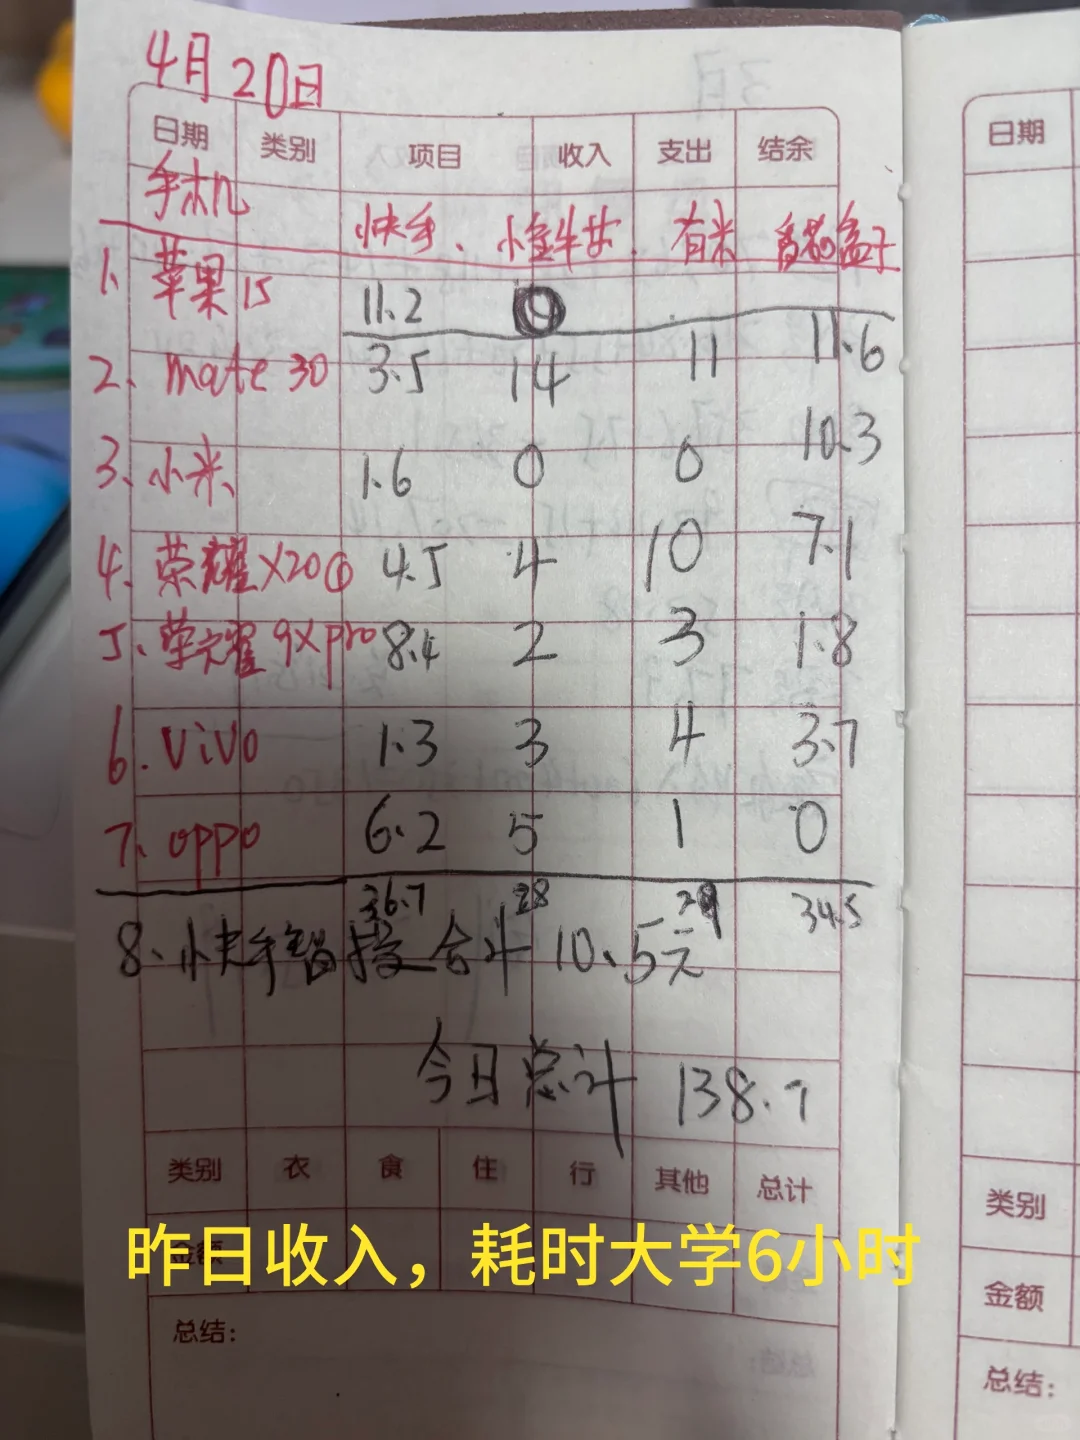 4月20日
日期 类别 项目 收入 支出 结余 日期
手机 快手、小金牛甘、有米 番茄盒子
1. 苹果15 11.2
11.6
2、mate 30 3.5 14 11
10.3
3、小米、 1.6 0 0
4、荣耀X20① 4.5 4 10 7.1
5、荣耀9Xpro 8.4 2 3 1.8
6.ViVo 1.3 3 4 3.7
7、oppo 6.2 5 1 0
36.7 28 29 34.5
8、快手 合计10.5元
今日总计 138.7
类别 衣 食 住 行 其他 总计 类别
昨日收入，耗时大学6小时
金额 金额
总结： 总结：